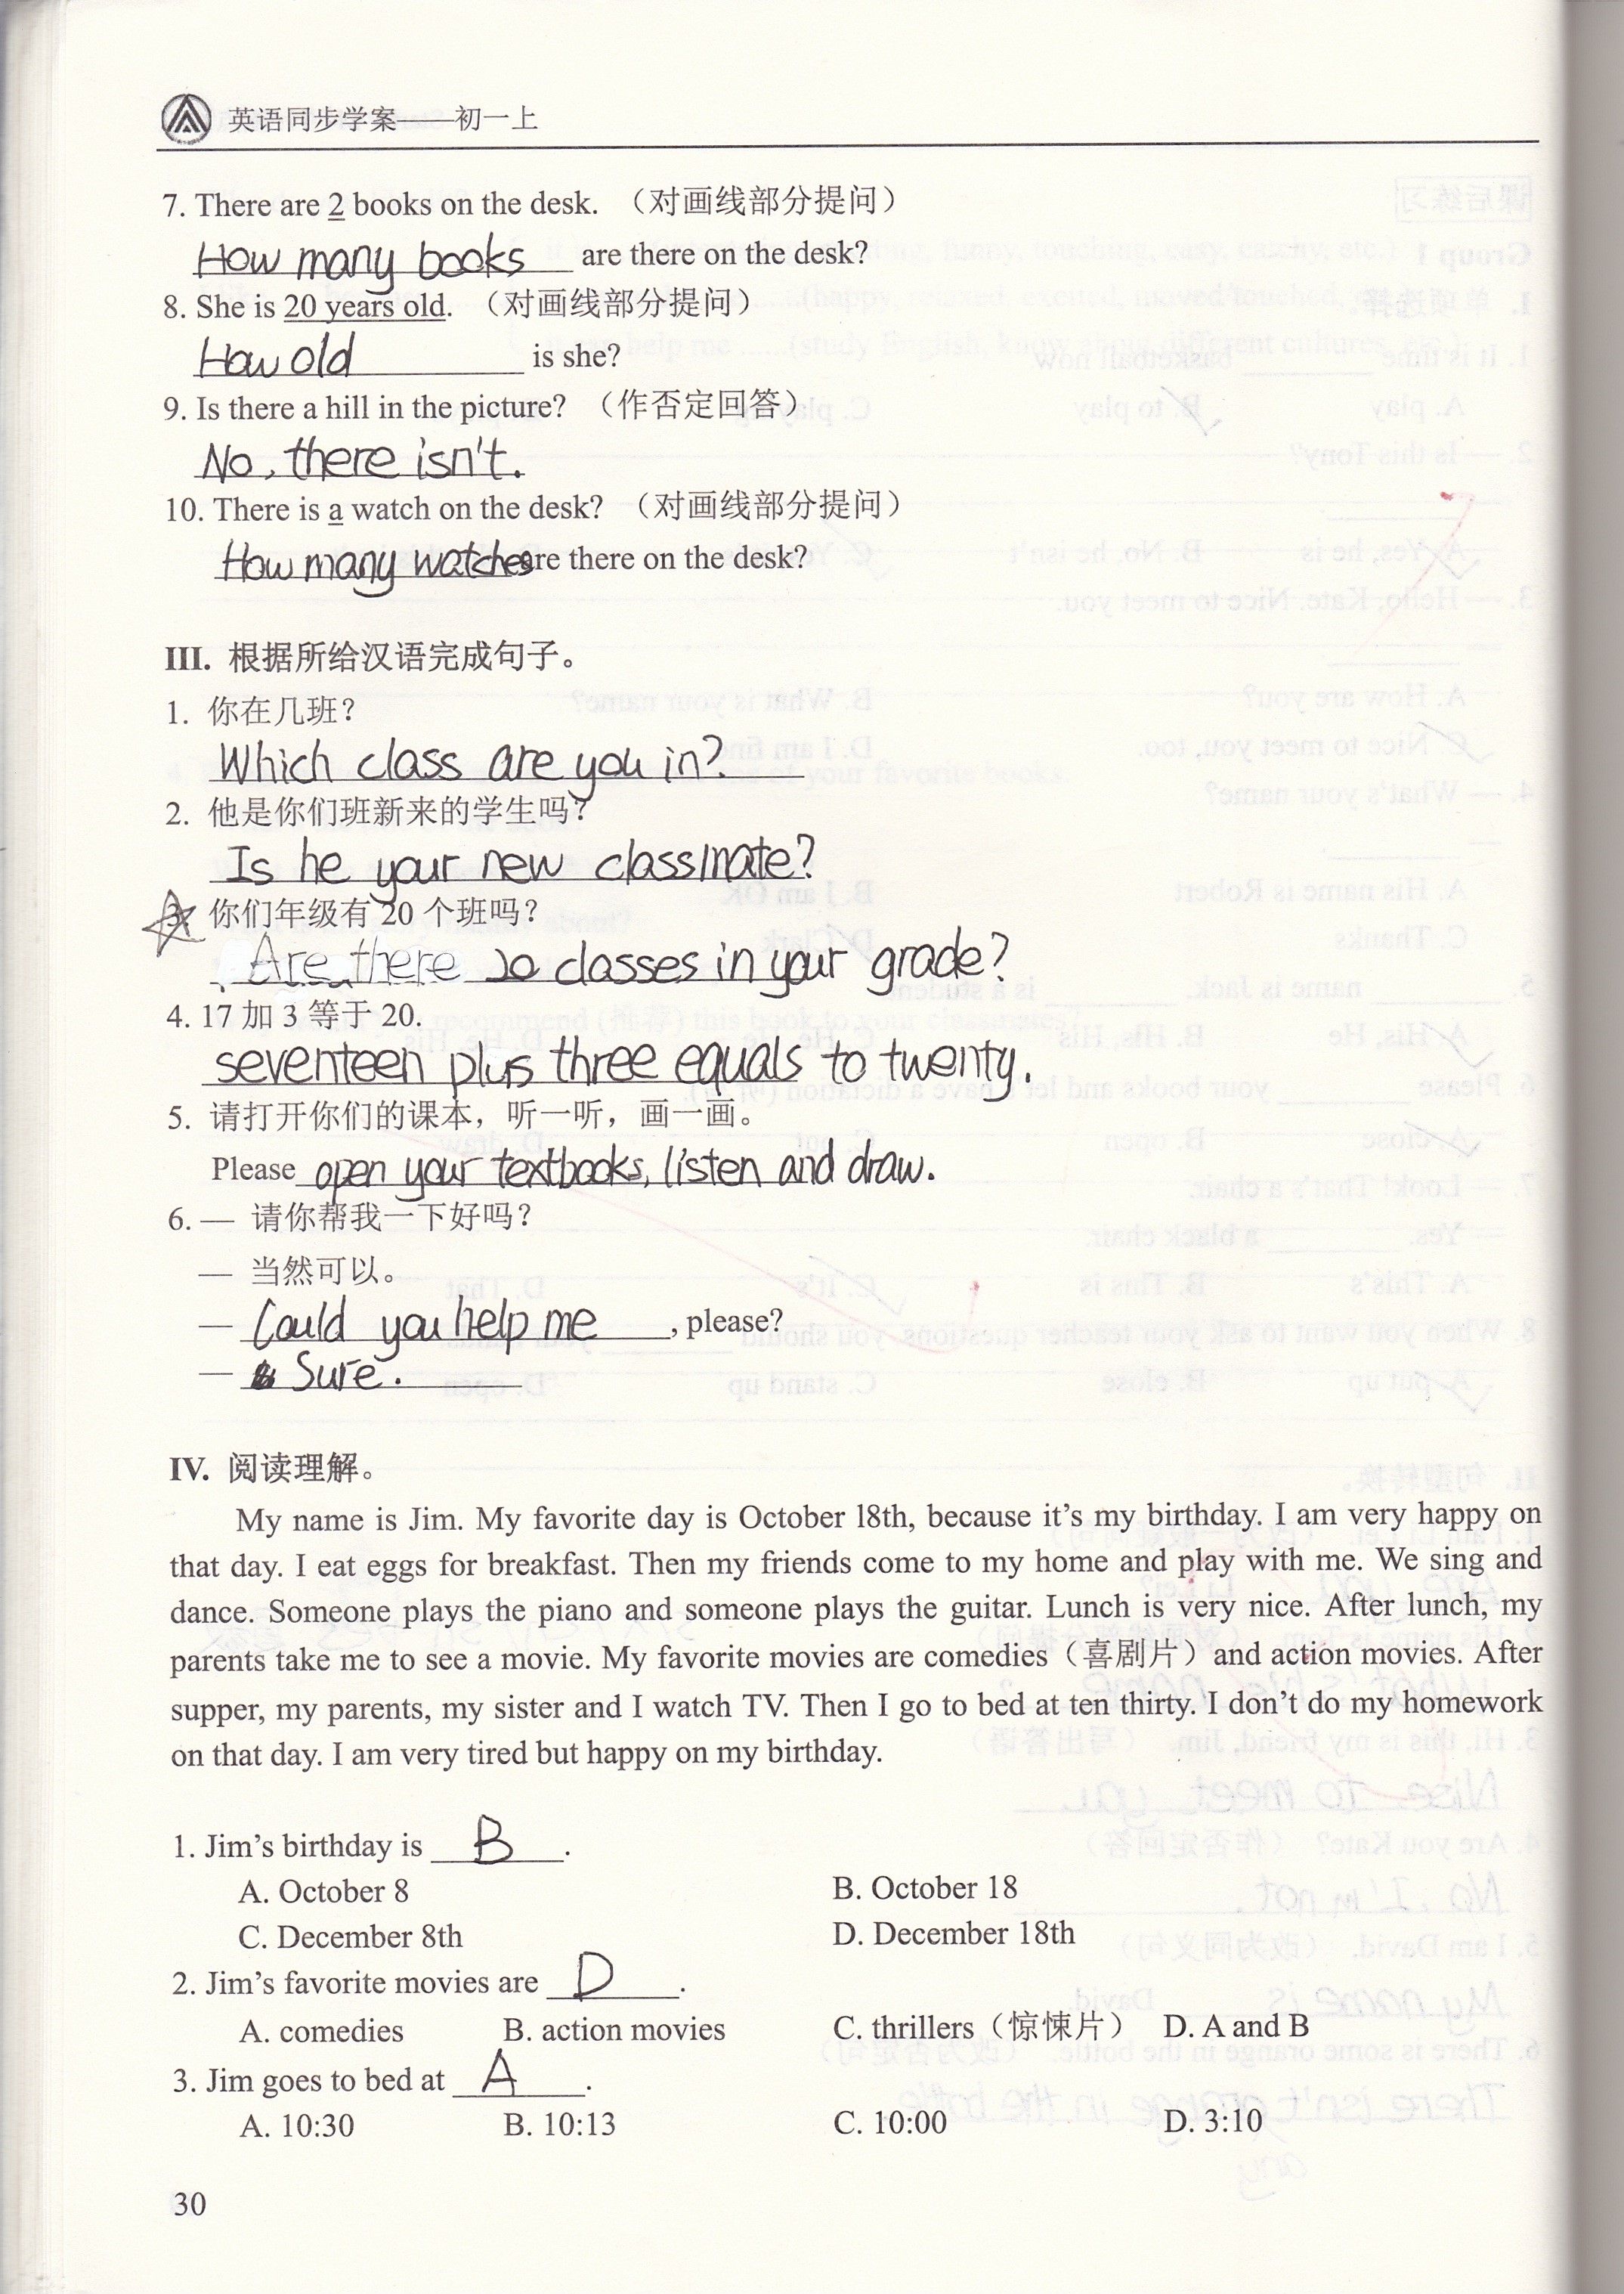 英语同步学案——初一上
7. There are 2 books on the desk. （对画线部分提问）
How many books are there on the desk?
8. She is 20 years old. （对画线部分提问）
How old is she?
9. Is there a hill in the picture? （作否定回答）
No, there isn't.
10. There is a watch on the desk? （对画线部分提问）
How many watches are there on the desk?
III. 根据所给汉语完成句子。
1. 你在几班?
Which class are you in?
2. 他是你们班新来的学生吗?
Is he your new classmate?
3. 你们年级有 20 个班吗?
Are there 20 classes in your grade?
4. 17 加 3 等于 20.
seventeen plus three equals to twenty.
5. 请打开你们的课本，听一听，画一画。
Please open your textbooks, listen and draw.
6. — 请你帮我一下好吗?
— 当然可以。
— Could you help me, please?
— Sure.
IV. 阅读理解。
My name is Jim. My favorite day is October 18th, because it's my birthday. I am very happy on
that day. I eat eggs for breakfast. Then my friends come to my home and play with me. We sing and
dance. Someone plays the piano and someone plays the guitar. Lunch is very nice. After lunch, my
parents take me to see a movie. My favorite movies are comedies（喜剧片）and action movies. After
supper, my parents, my sister and I watch TV. Then I go to bed at ten thirty. I don't do my homework
on that day. I am very tired but happy on my birthday.
1. Jim's birthday is B.
A. October 8 B. October 18
C. December 8th D. December 18th
2. Jim's favorite movies are D.
A. comedies B. action movies C. thrillers（惊悚片） D. A and B
3. Jim goes to bed at A.
A. 10:30 B. 10:13 C. 10:00 D. 3:10
30